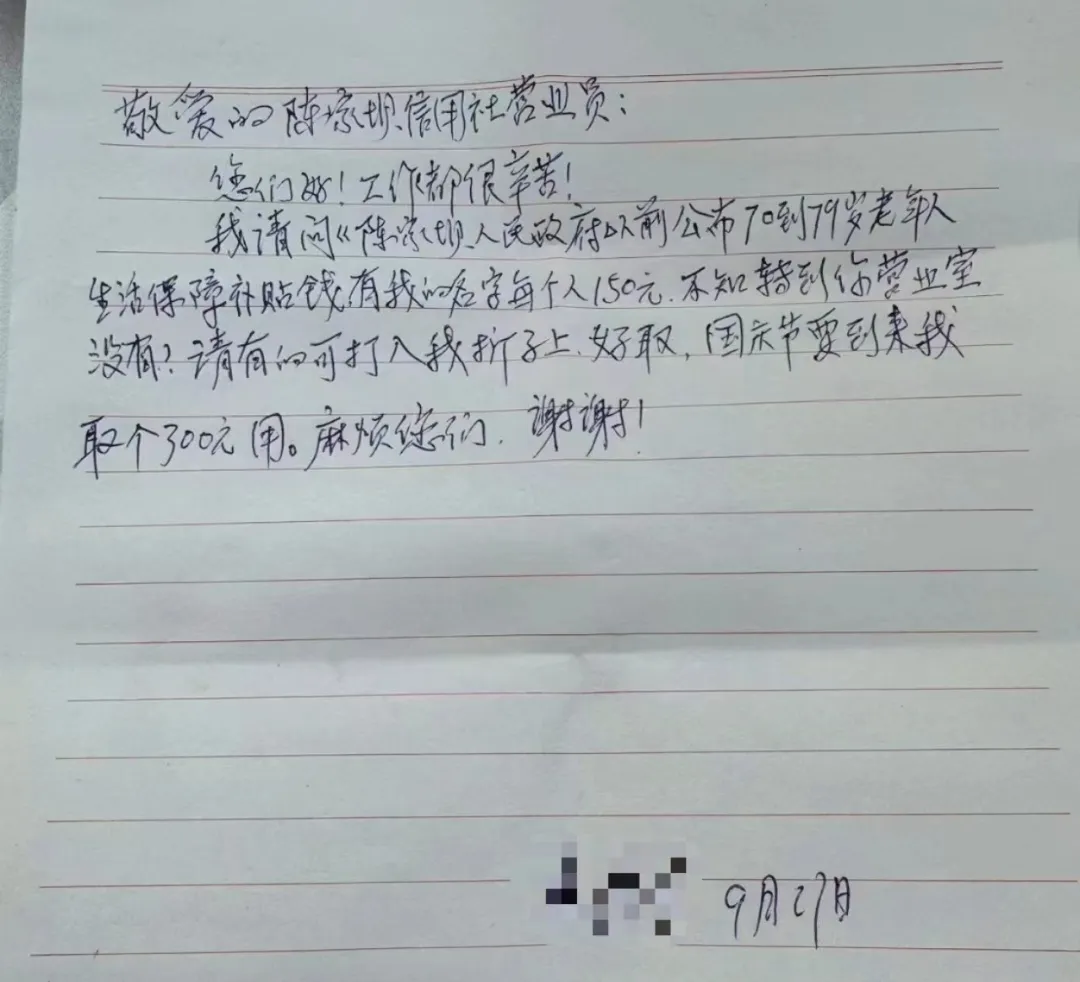 敬爱的陈家坝信用社营业员：
您们好！工作都很辛苦！
我请问《陈家坝人民政府以前公布70到79岁老年人
生活保障补贴钱有我的名字每个人150元.不知转到你营业室
没有？请有的可打入我折子上.好取，国庆节要到来我
取个300元用。麻烦您们.谢谢！
9月27日